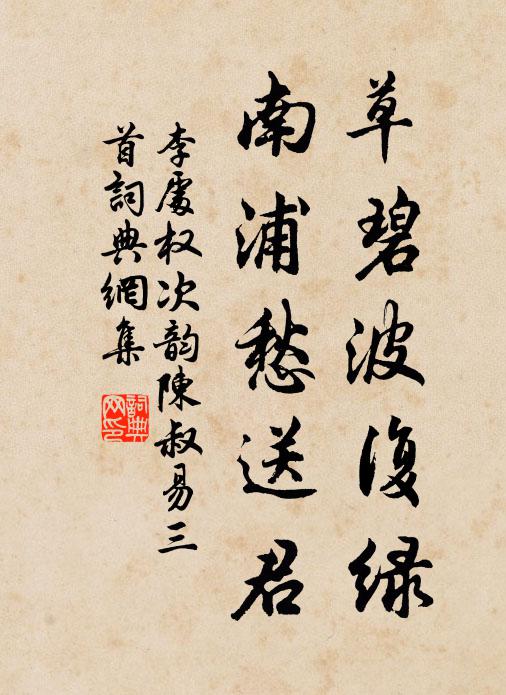 草碧波復綠
南浦愁送君
李處权次韵陳叔易三
首詞典網集
詞典
网印